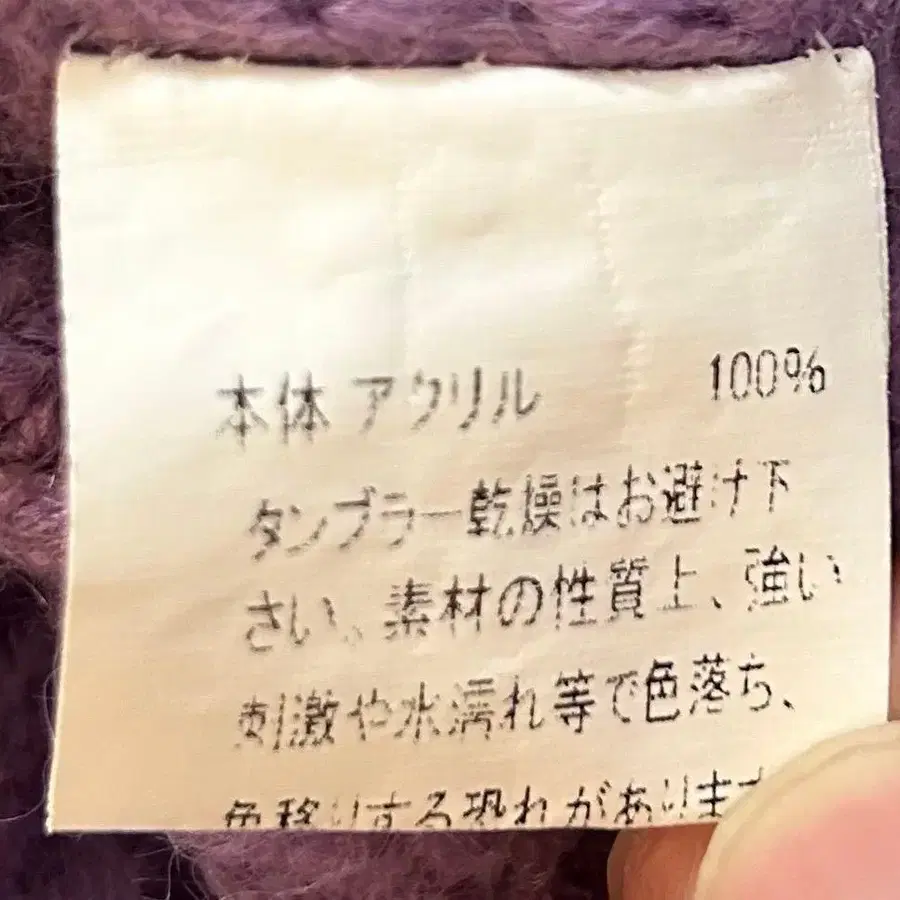 本体 アクリル 100%
タンブラー乾燥はお避け下
さい。素材の性質上、強い
刺激や水濡れ等で色落ち、
色移りする恐れがあります